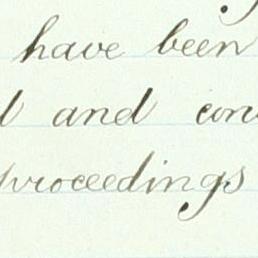 have been
and
proceedings